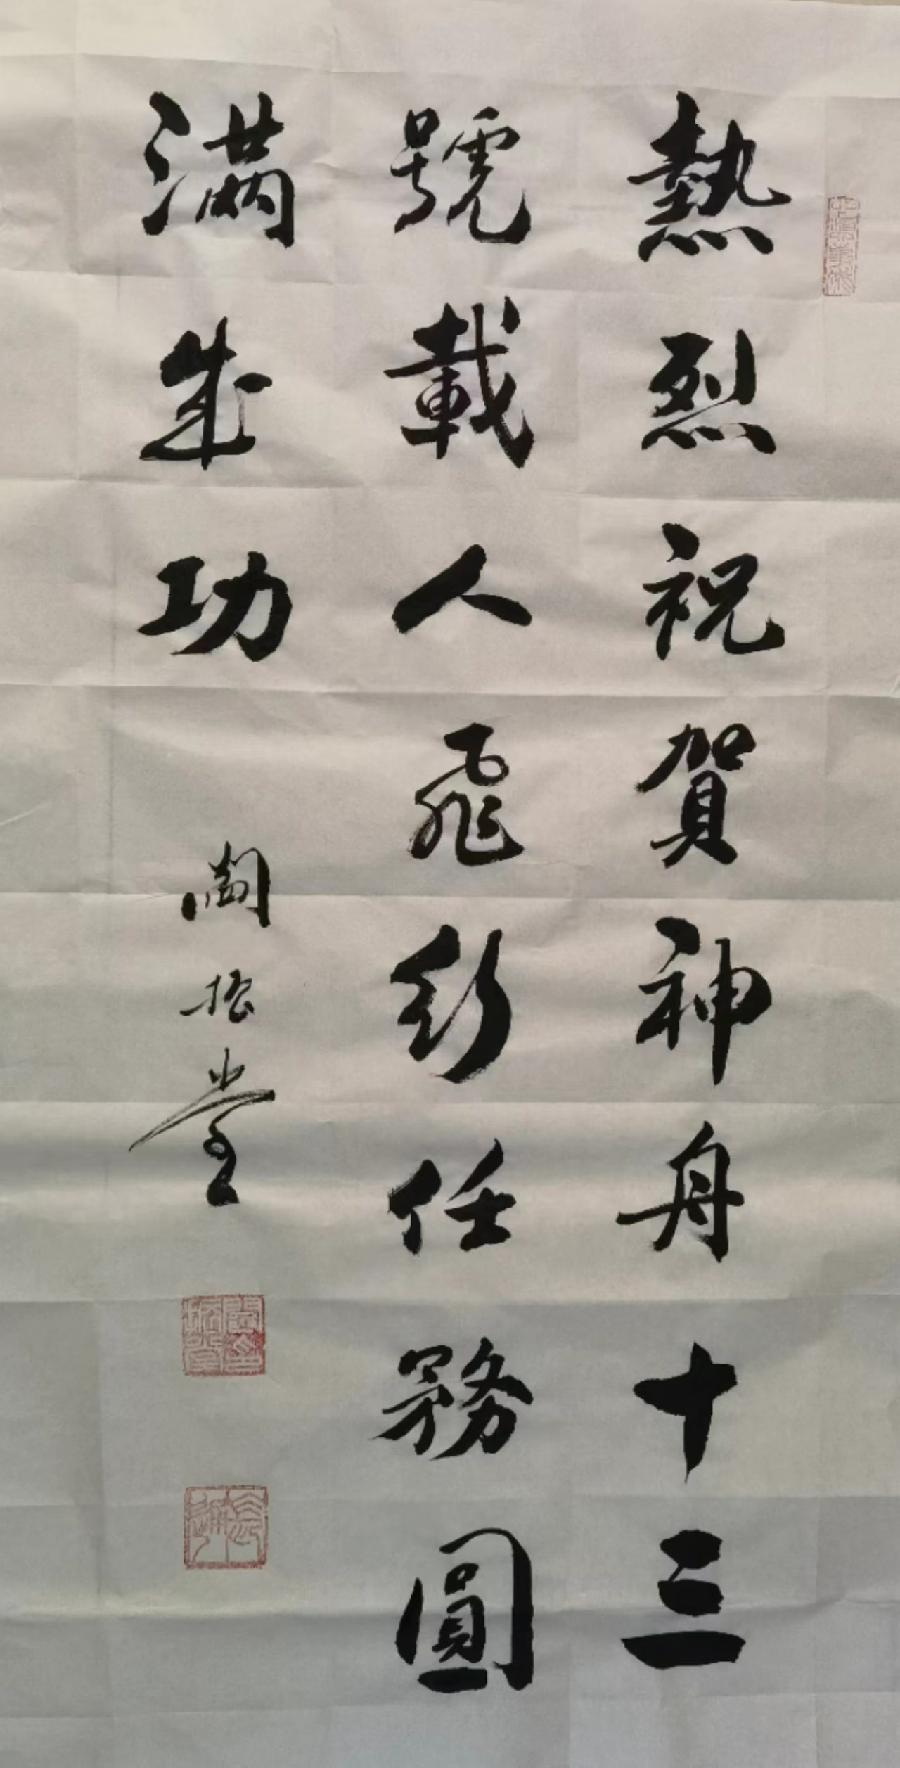 熱烈祝賀神舟十三
號載人飛行任務圓
滿成功
振堂